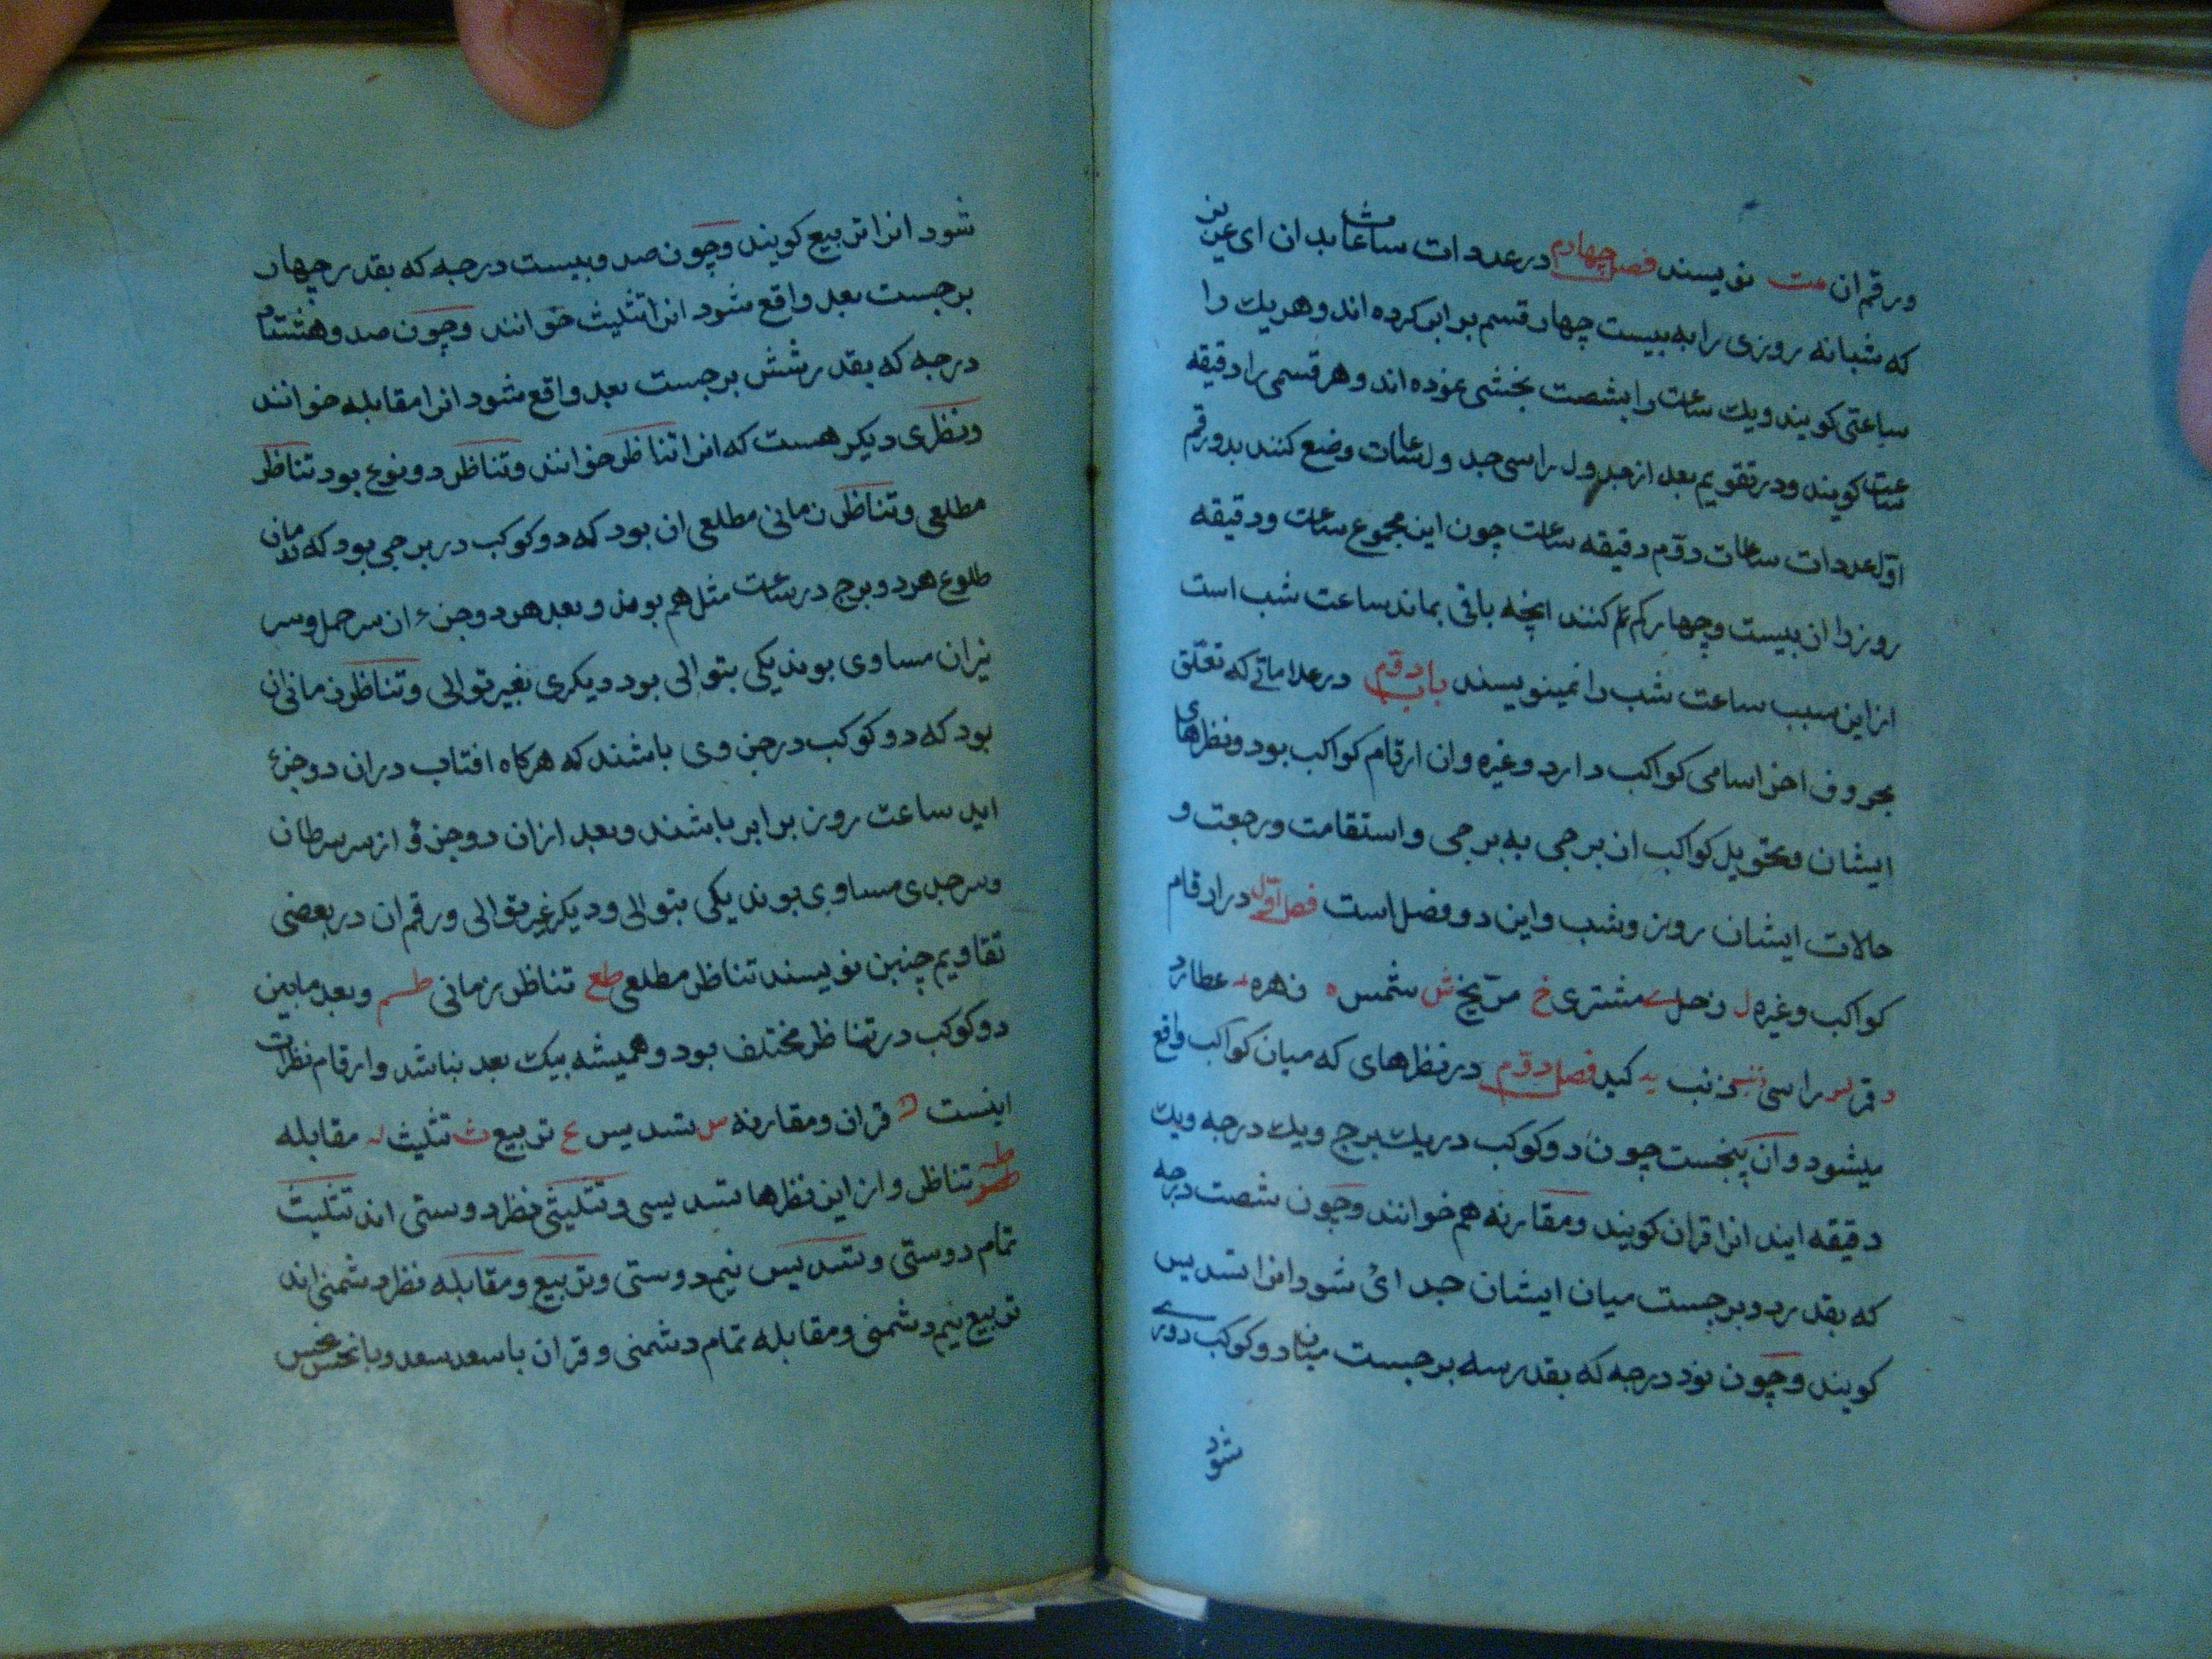 ورقم ان مت نویسند فصل چهارم در عددات ساعات بدان ای عزیز
که شبانه روزی را به بیست چهار قسم برابر کرده اند و هر یك را
ساعتی کویند ویك ساعت را بشصت بخشی نموده اند و هر قسمی را دقیقه
ساعت کویند ودر تقویم بعد از جدول راسی جدول ساعات وضع کنند بدو رقم
اوّل عددات ساعات دوّم دقیقه ساعت چون این مجموع ساعت ودقیقه
روز را ان بیست وچهار کم کنند انچه باقی بماند ساعت شب است
از این سبب ساعت شب را نمینویسند باب دوّم در علاماتی که تعلّق
بحروف اخر اسامی کواکب دارد وغیره وان ارقام کواکب بود ونظرهای
ایشان وتحویل کواکب ان برجی به برجی واستقامت ورجعت و
حالات ایشان روز وشب واین دو فصل است فصل اوّل در ارقام
کواکب وغیره ل زحل ے مشتری خ مرّیخ ش شمس ه زهره د عطارد
ر قمر س راسی ذنب ید کید فصل دوّم در نظرهای که میان کواکب واقع
میشود وان پنجست چون دو کوکب در یك برج ویك درجه ویك
دقیقه ایند انرا قران کویند ومقارنه هم خوانند وچون شصت درجه
که بقدر دو برجست میان ایشان جدائ شود انرا تسدیس
کویند وچون نود درجه که بقدر سه برجست میان دو کوکب دوری
شود
شود انرا تربیع کویند وچون صد وبیست درجه که بقدر چهار
برجست بعد واقع شود انرا تثلیث خوانند وچون صد وهشتاد
درجه که بقدر شش برجست بعد واقع شود انرا مقابله خوانند
ونظری دیکر هست که انرا تناظر خوانند وتناظر دو نوع بود تناظر
مطلعی وتناظر زمانی مطلعی ان بود که دو کوکب در برجی بود که زمان
طلوع هر دو برج در ساعت مثل هم بوند وبعد هر دو جزء ان سر حمل وسر
میزان مساوی بوند یکی بتوالی بود دیکری بغیر توالی وتناظر زمانی ان
بود که دو کوکب در جزوی باشند که هرکاه افتاب دران دو جزء
اید ساعت روز برابر باشند وبعد ازان دو جزؤ از سر سرطان
وسر جدی مساوی بوند یکی بتوالی ودیکر غیر توالی ورقم ان در بعضی
تقاویم چنین نویسند تناظر مطلعی طع تناظر زمانی طـم وبعد مابین
دو کوکب در تناظر مختلف بود وهمیشه بیك بعد نباشد وارقام نظرات
اینست قران ومقارنه س تسدیس ع تربیع ث تثلیث له مقابله
تناظر وازاین نظرها تسدیسی وتثلیثی نظر دوستی اند تثلیث
تمام دوستی وتسدیس نیم دوستی وتربیع ومقابله نظر دشمنی اند
تربیع نیم دشمنی ومقابله تمام دشمنی وقران باسعد سعد وبا نحس نحس